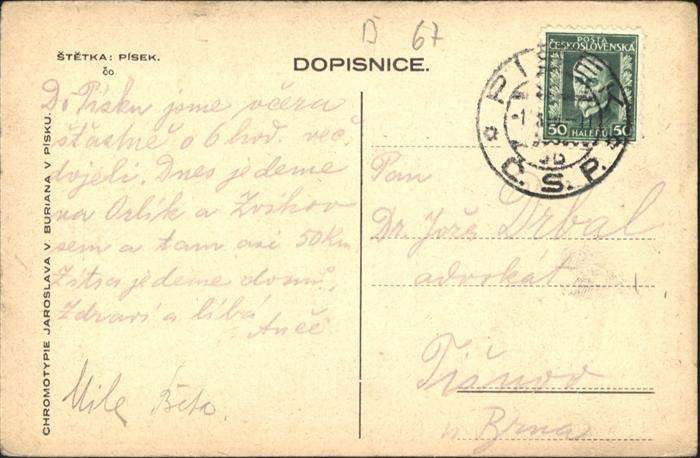 D 67
ŠTĚTKA: PÍSEK.
čo
DOPISNICE.
POSTA
ČESKOSLOVENSKÁ
50 HALÉŘŮ 50
PÍSEK
Č.S.P.
CHROMOTYPIE JAROSLAVA V BURIANA V PÍSKU.
Do Písku jsme včera
šťastně o 6 hod. več.
dojeli. Dnes jedeme
na Orlík a Zvíkov
sem a tam asi 50 Km
Zítra jedeme domů,
Zdraví a líbá
Anče
Mile
Pan
Dr. Jož. Drbal
advokát
Tišnov
u Brna